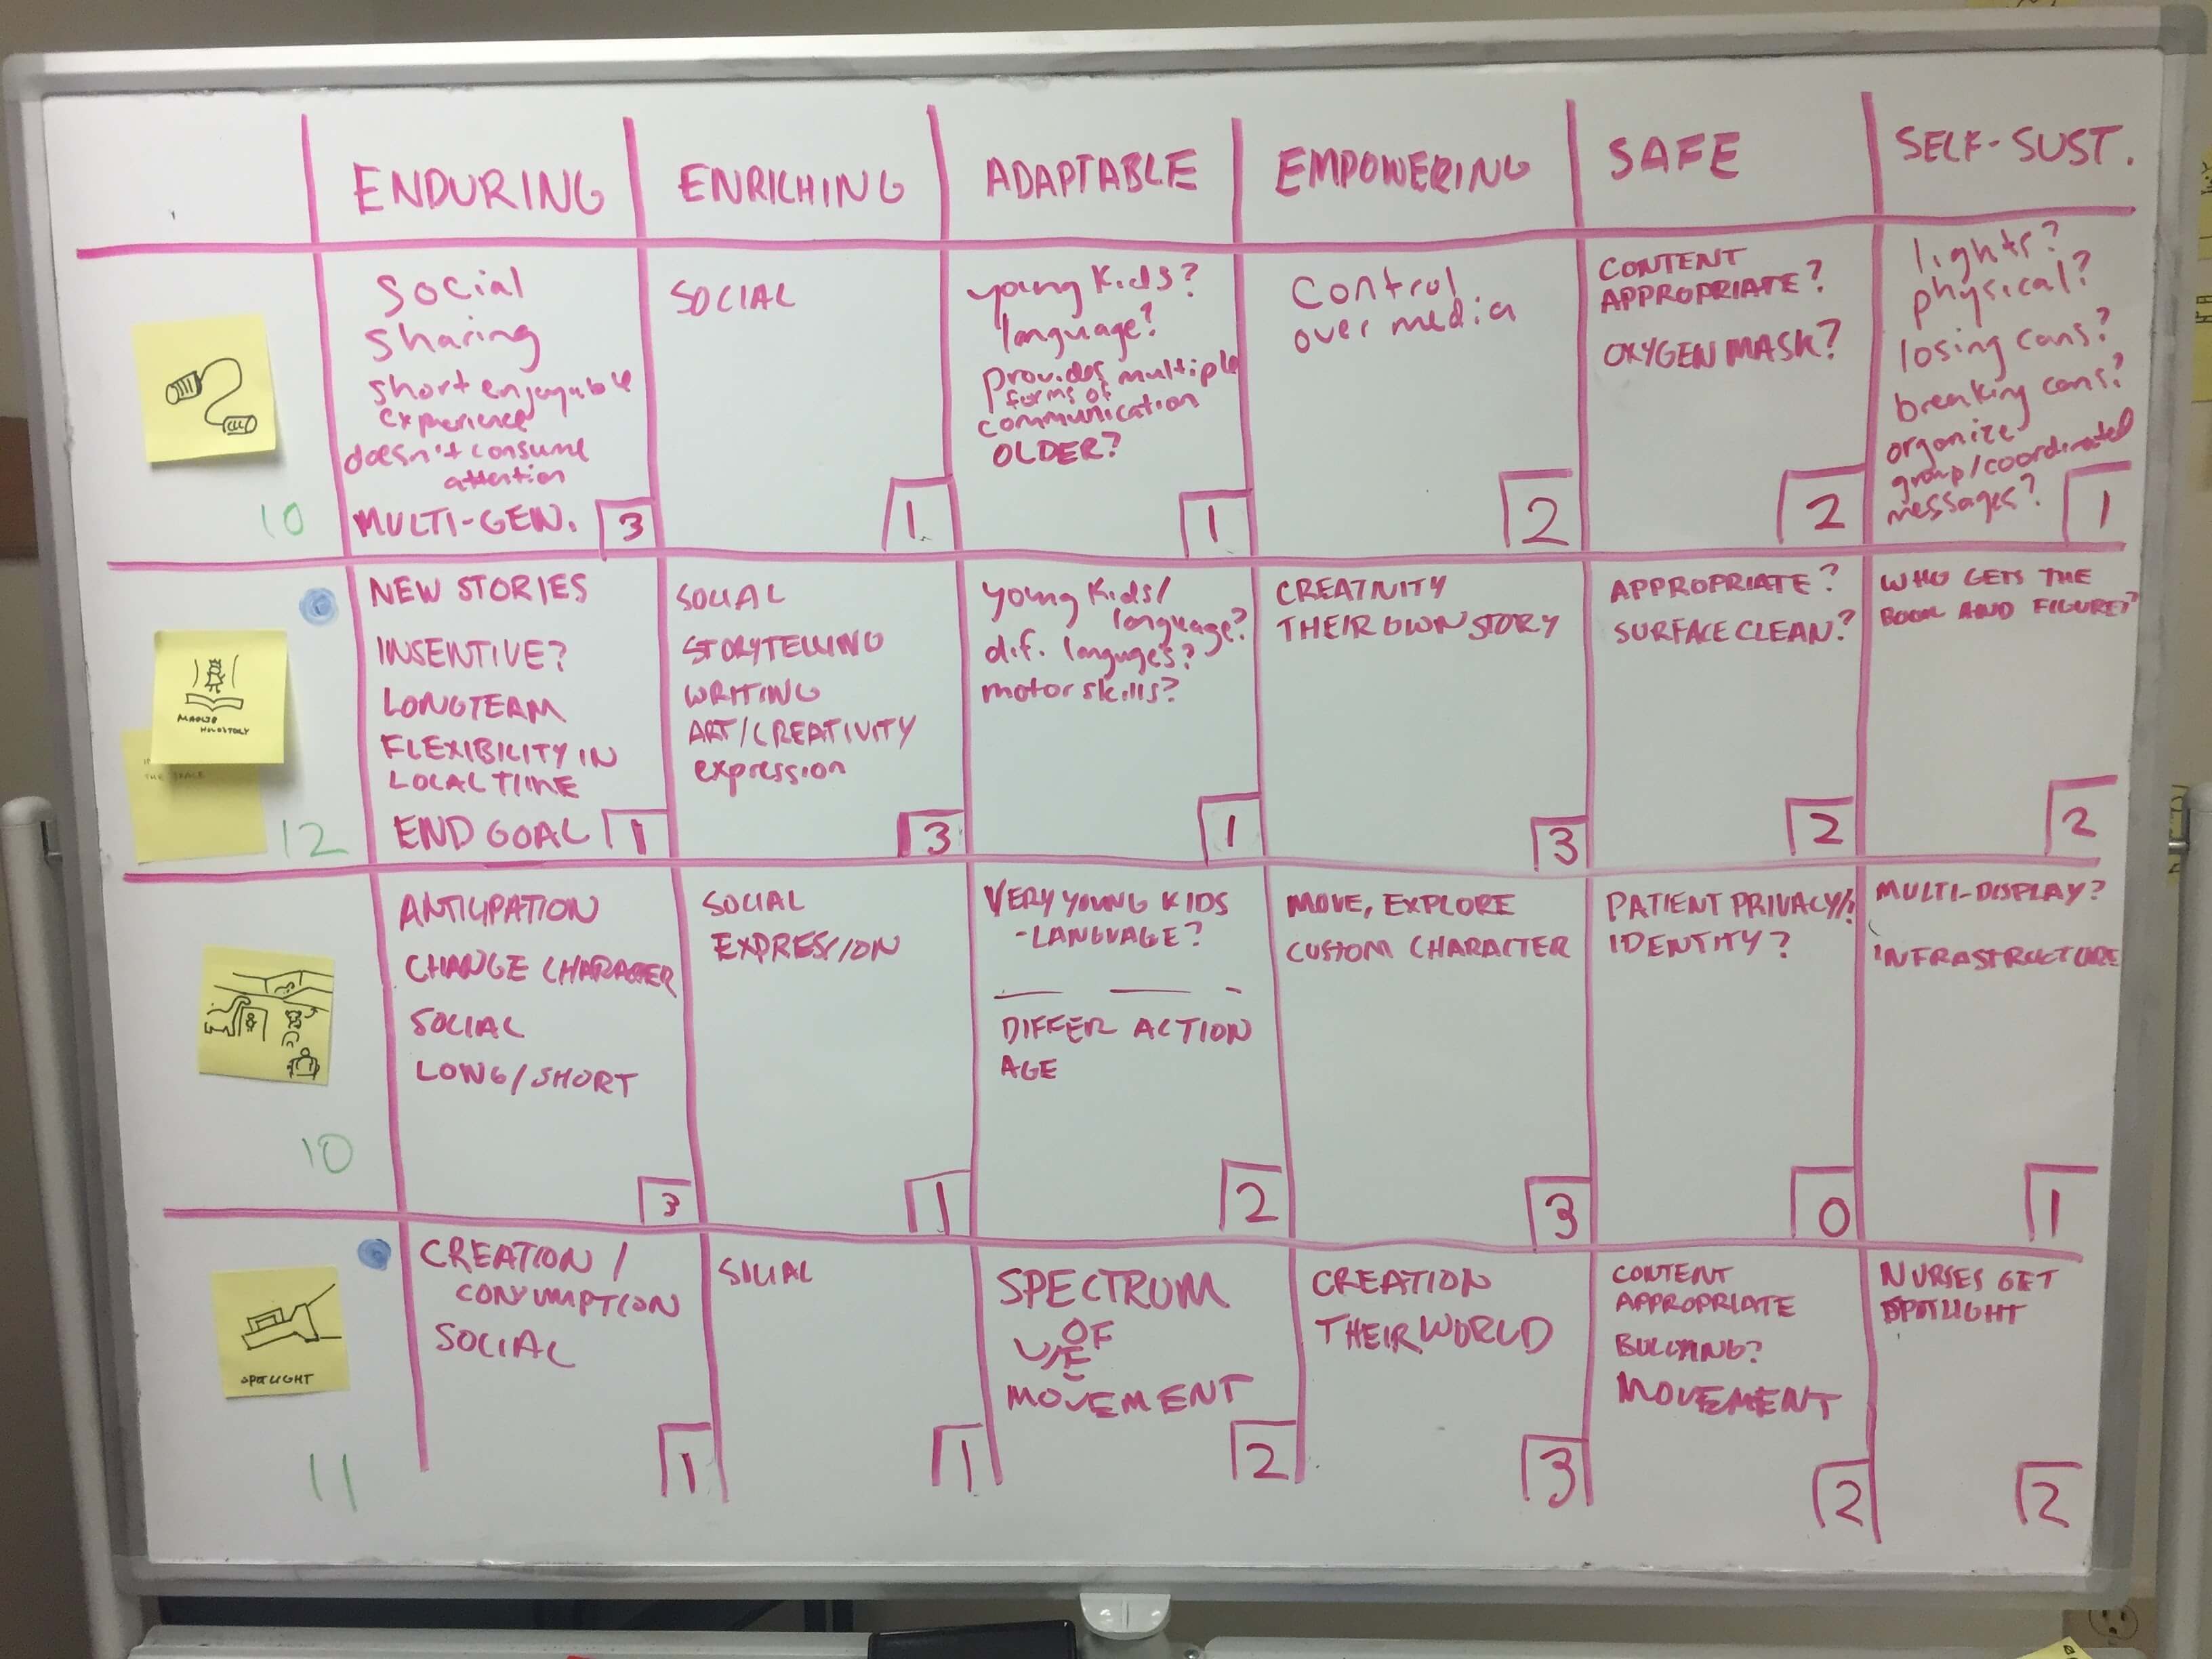 ENDURING
ENRICHING
ADAPTABLE
EMPOWERING
SAFE
SELF-SUST.
10
social
sharing
short enjoyable
experience
doesn't consume
attention
MULTI-GEN.
3
SOCIAL
1
young kids?
language?
provides multiple
forms of
communication
OLDER?
1
Control
over media
2
CONTENT
APPROPRIATE?
OXYGEN MASK?
2
lights?
physical?
losing cans?
breaking cans?
organize
group/coordinated
messages?
1
HOLOSTORY
THE SPACE
12
NEW STORIES
INSENTIVE?
LONGTEAM
FLEXIBILITY IN
LOCAL TIME
END GOAL
1
SOCIAL
STORYTELLING
WRITING
ART/CREATIVITY
expression
3
young kids/
language?
dif. languges?
motor skills?
1
CREATIVITY
THEIR OWN STORY
3
APPROPRIATE?
SURFACE CLEAN?
2
WHO GETS THE
BOOK AND FIGURE?
2
10
ANTICIPATION
CHANGE CHARACTER
SOCIAL
LONG/SHORT
3
SOCIAL
EXPRESSION
1
VERY YOUNG KIDS
-LANGUAGE?
DIFFER ACTION
AGE
2
MOVE, EXPLORE
CUSTOM CHARACTER
3
PATIENT PRIVACY/?
IDENTITY?
0
MULTI-DISPLAY?
INFRASTRUCTURE
1
SPOTLIGHT
11
CREATION /
CONSUMPTION
SOCIAL
1
SOCIAL
1
SPECTRUM
OF
USE
MOVEMENT
2
CREATION
THEIR WORLD
3
CONTENT
APPROPRIATE
BULLYING?
MOVEMENT
2
NURSES GET
SPOTLIGHT
2